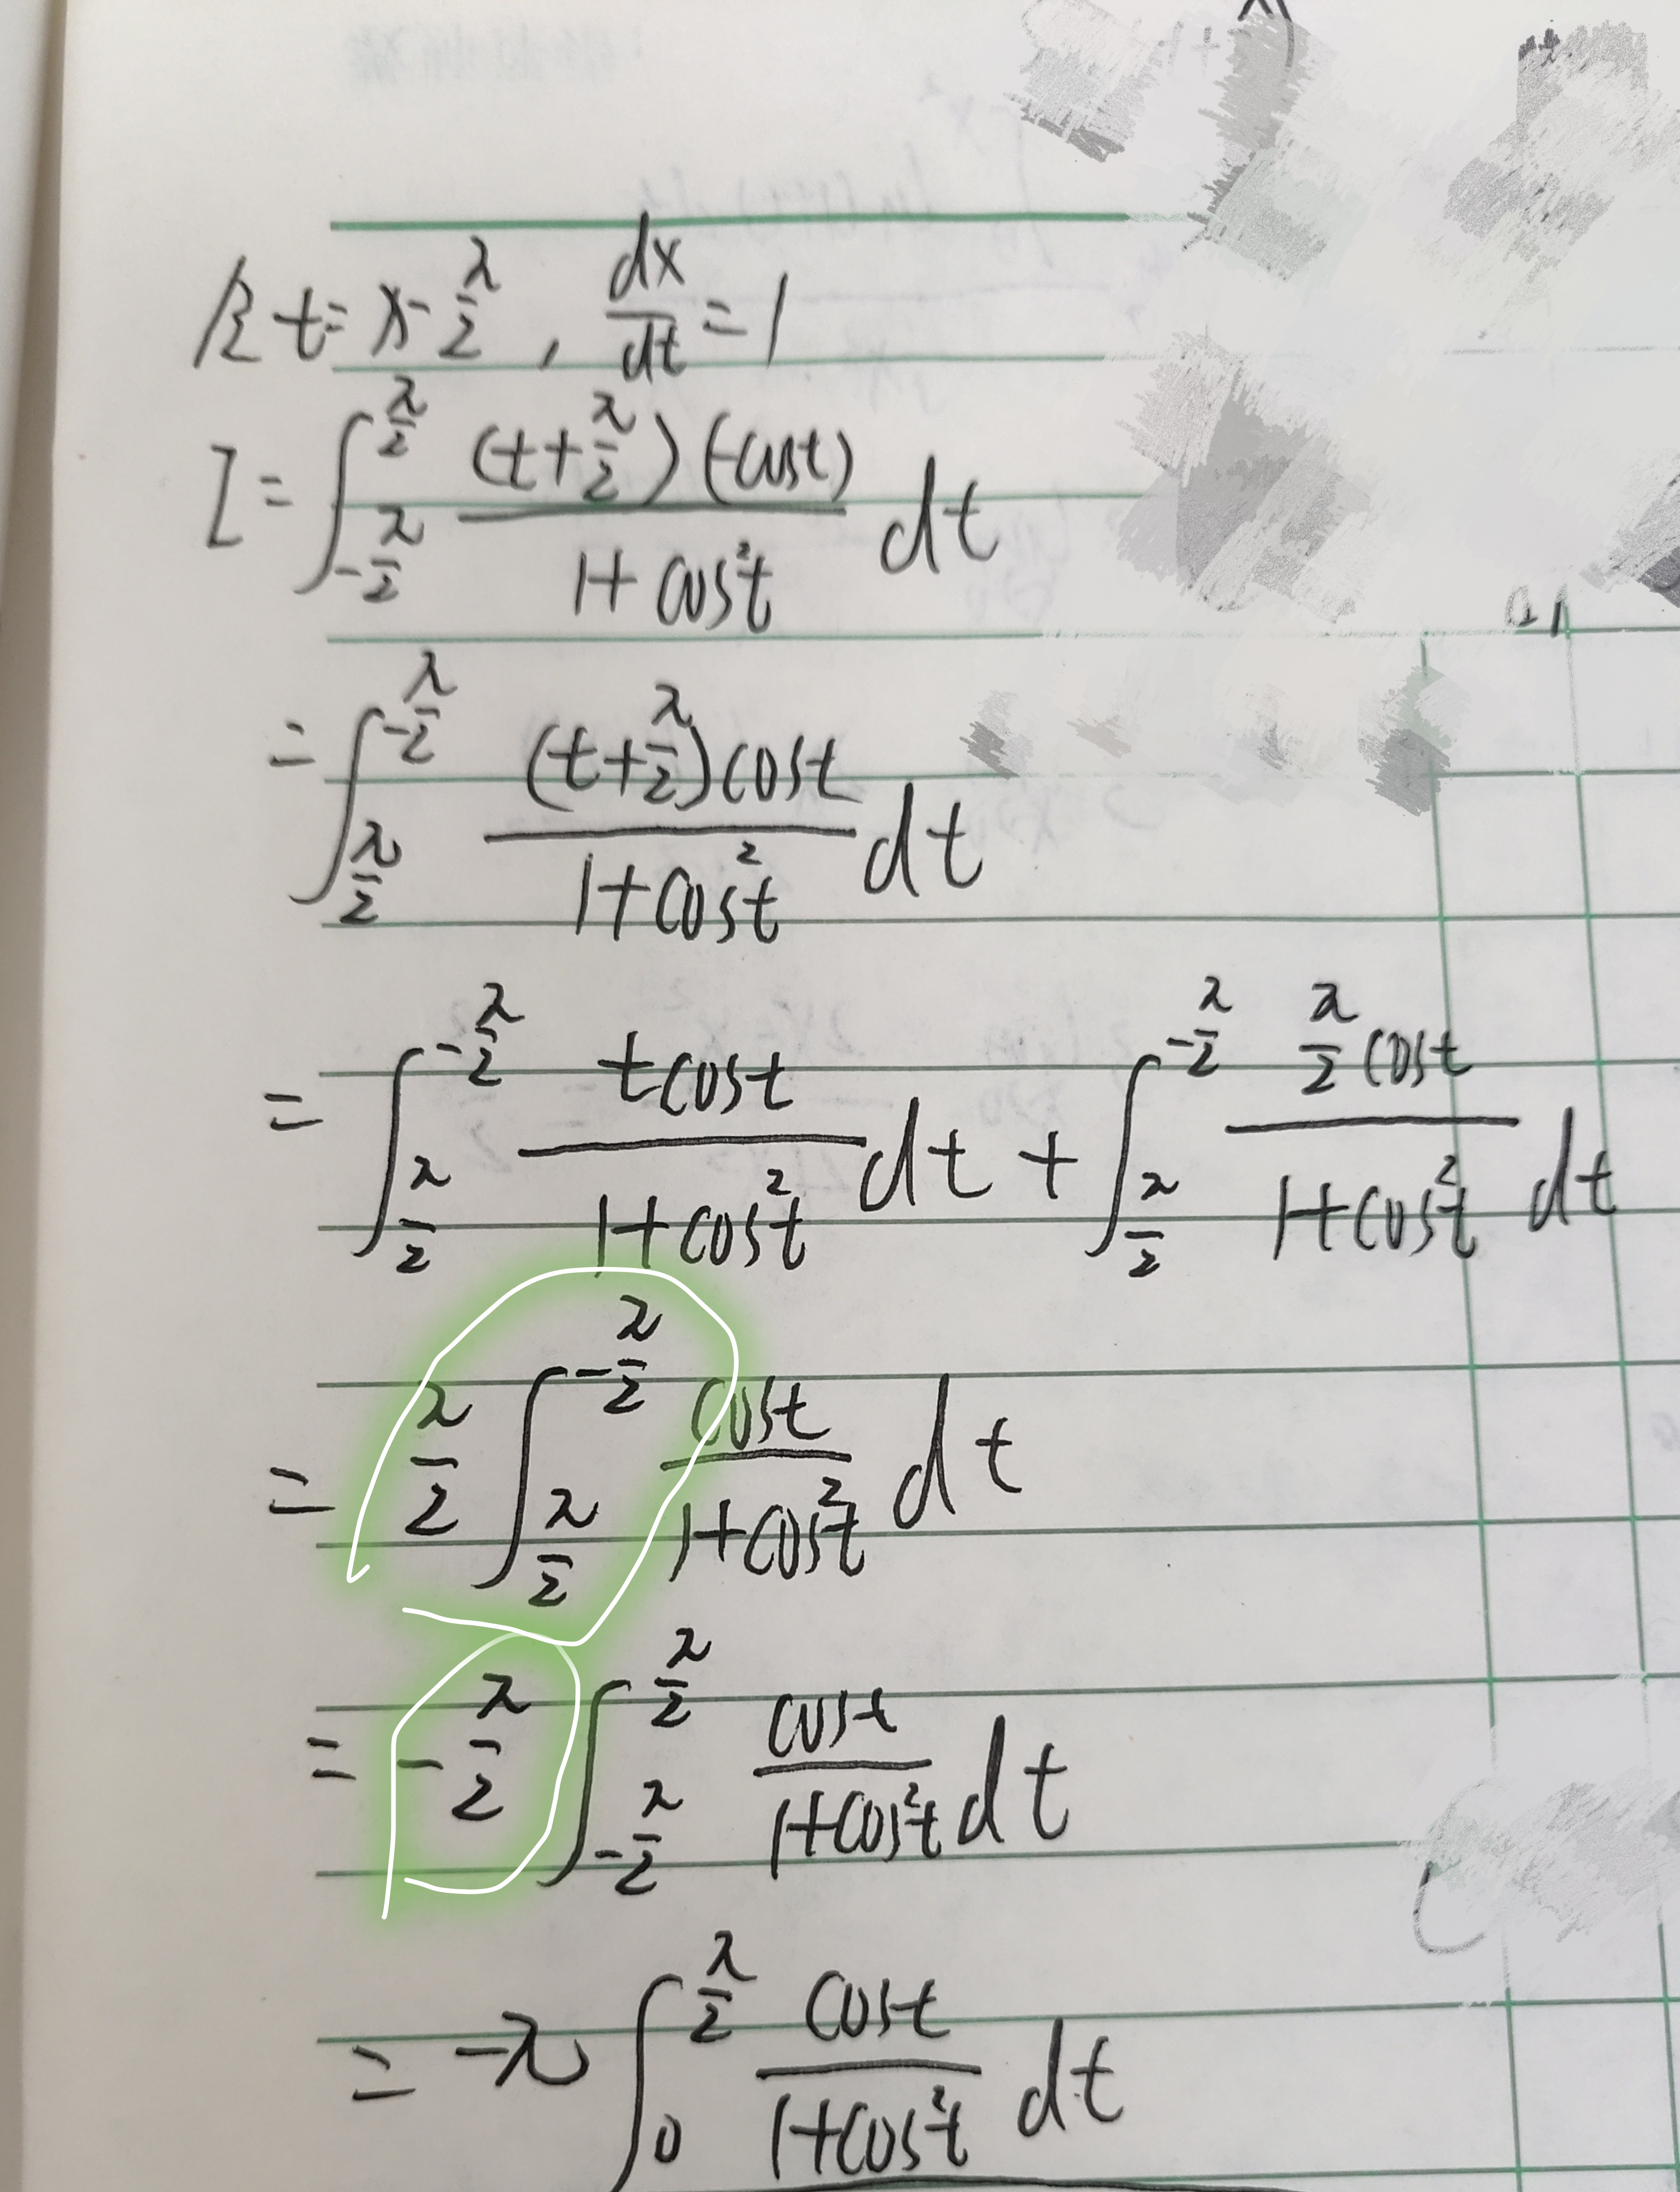 设 t = x - π/2 , dx/dt = 1
I = ∫_{-π/2}^{π/2} (t + π/2)(-cost) / (1 + cos²t) dt
= ∫_{π/2}^{-π/2} (t + π/2)cost / (1 + cos²t) dt
= ∫_{π/2}^{-π/2} tcost / (1 + cos²t) dt + ∫_{π/2}^{-π/2} (π/2)cost / (1 + cos²t) dt
= π/2 ∫_{π/2}^{-π/2} cost / (1 + cos²t) dt
= -π/2 ∫_{-π/2}^{π/2} cost / (1 + cos²t) dt
= -π ∫_{0}^{π/2} cost / (1 + cos²t) dt